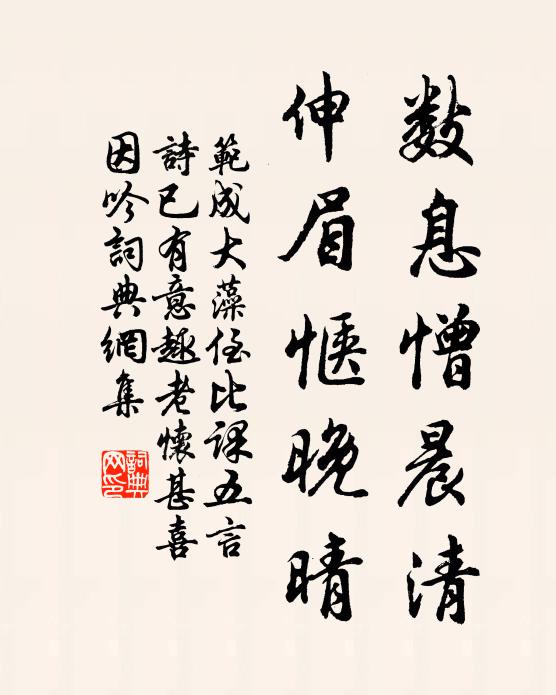 数息憎晨清
伸眉惬晚晴
範成大藻侄比課五言
詩已有意趣老懷甚喜
因吟詞典網集
詞典網印